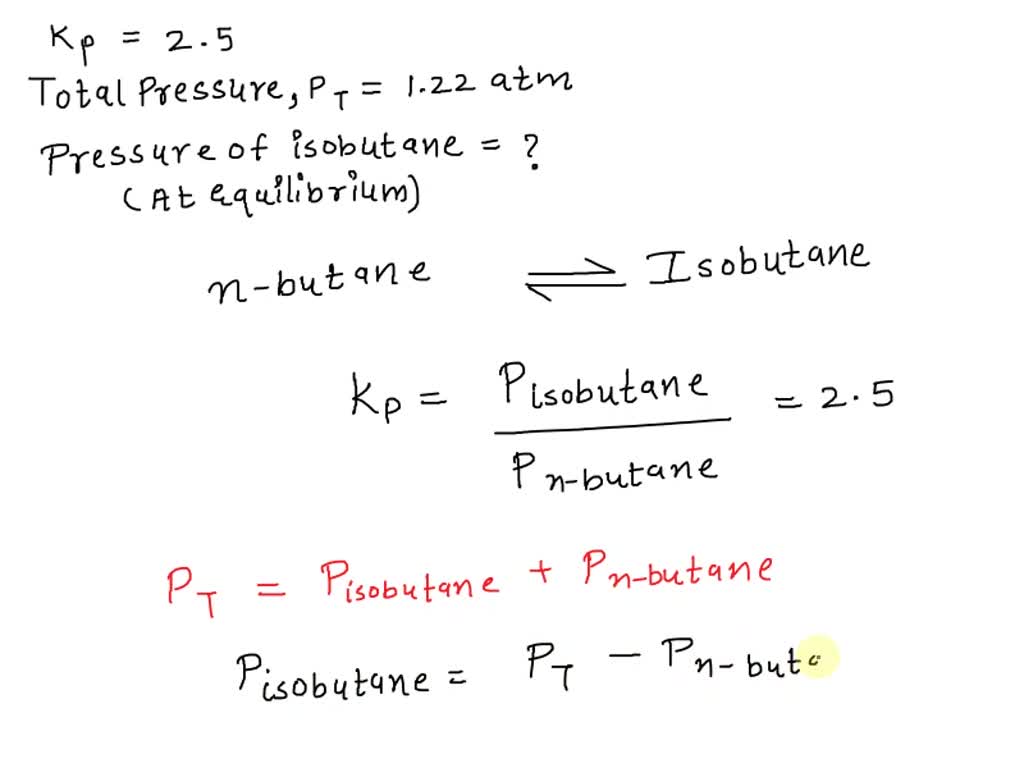 Kp = 2.5
Total Pressure, PT = 1.22 atm
Pressure of isobutane = ?
(At equilibrium)
n-butane ⇌ Isobutane
Kp = Pisobutane / Pn-butane = 2.5
PT = Pisobutane + Pn-butane
Pisobutane = PT - Pn-buta